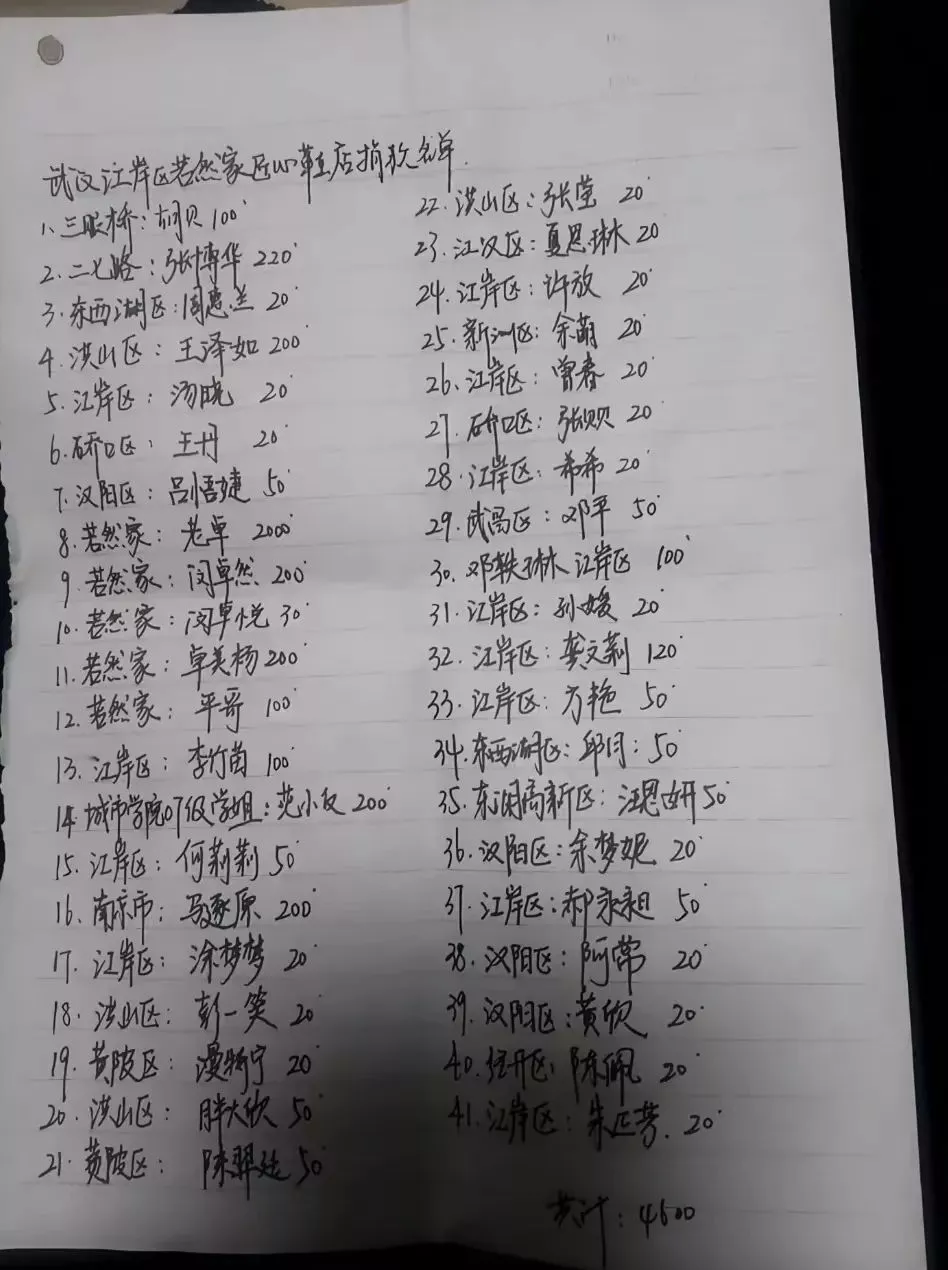 武汉江岸区若然家匠心草主店捐款名单
1、三眼桥：胡贝 100
2、二七路：张博华 220
3、东西湖区：周惠兰 20
4、洪山区：王泽如 200
5、江岸区：汤晓 20
6、硚口区：王丹 20
7、汉阳区：吕悟婕 50
8、若然家：老卓 2000
9、若然家：闵卓然 200
10、若然家：闵卓悦 30
11、若然家：卓美杨 200
12、若然家：平哥 100
13、江岸区：李竹茵 100
14、城市学院07级学姐：范小白 200
15、江岸区：何莉莉 50
16、南京市：马逐原 200
17、江岸区：涂梦梦 20
18、洪山区：彭一笑 20
19、黄陂区：漫 宁 20
20、洪山区：胖大欣 50
21、黄陂区：陈羿廷 50
22、洪山区：张莹 20
23、江汉区：夏思琳 20
24、江岸区：许放 20
25、新洲区：余萌 20
26、江岸区：曾春 20
27、硚口区：张贝贝 20
28、江岸区：希希 20
29、武昌区：邓平 50
30、邓轶琳 江岸区 100
31、江岸区：孙媛 20
32、江岸区：龚文莉 120
33、江岸区：方艳 50
34、东西湖区：邱月：50
35、东湖高新区：汪思妍 50
36、汉阳区：余梦妮 20
37、江岸区：郝永昶 50
38、汉阳区：阿常 20
39、汉阳区：黄欣 20
40、经开区：陈佩 20
41、江岸区：朱正芳、20
共计：4600